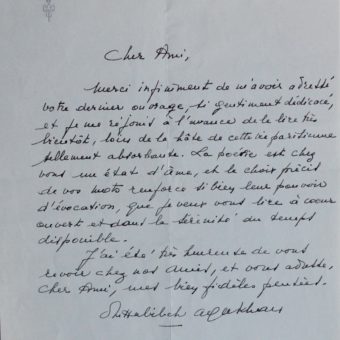 Cher Ami,
Merci infiniment de m'avoir adressé
votre dernier ouvrage, si gentiment dédicacé,
et je me réjouis à l'avance de le lire très
bientôt, loin de la hâte de cette vie parisienne
tellement absorbante. La poésie est chez
vous un état d'âme, et le choix précis
de vos mots renforce si bien leur pouvoir
d'évocation, que je veux vous lire à cœur
ouvert et dans la sérénité du temps
disponible.
J'ai été très heureuse de vous
revoir chez nos amis, et vous adresse,
cher Ami, mes bien fidèles pensées.
Om Habibeh Aga Khan